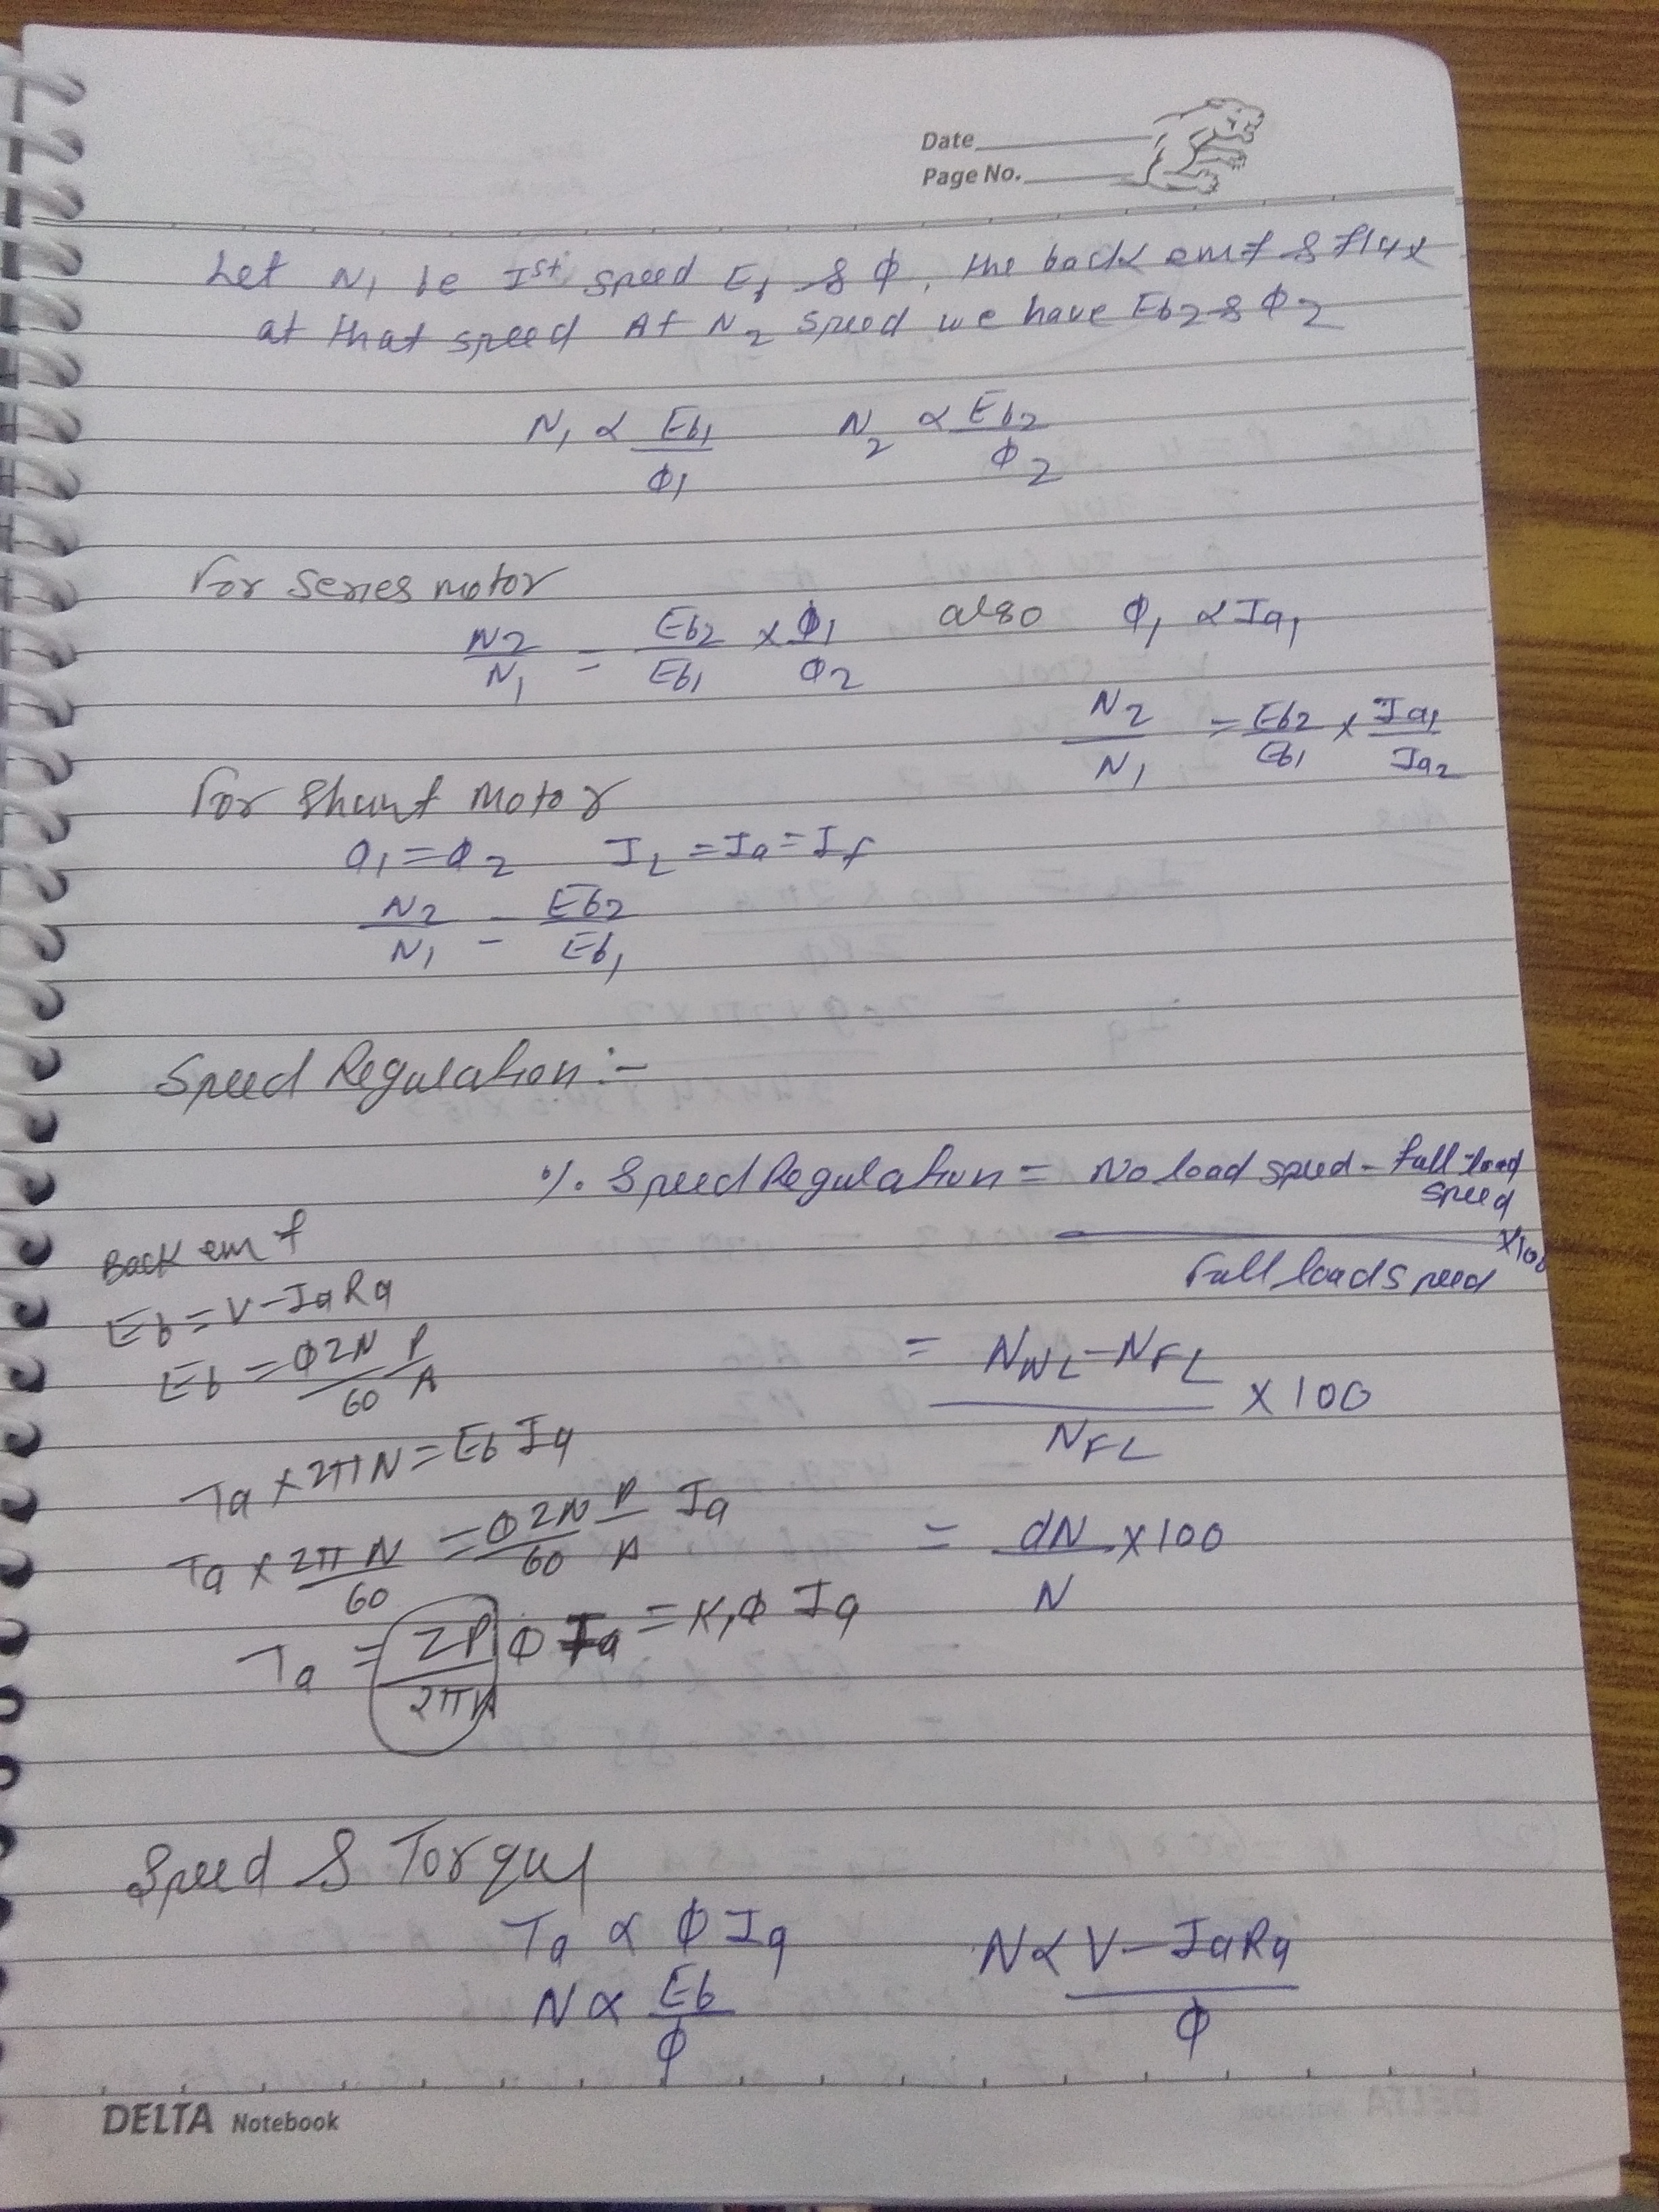 Date
Page No.
Let N1 be Ist speed E1 & Φ, the back emf & flux
at that speed At N2 speed we have Eb2 & Φ2
N1 ∝ Eb1/Φ1 N2 ∝ Eb2/Φ2
For Series motor
N2/N1 = Eb2/Eb1 × Φ1/Φ2 also Φ1 ∝ Ia1
N2/N1 = Eb2/Eb1 × Ia1/Ia2
For Shunt Motor
Φ1 = Φ2 IL = Ia = If
N2/N1 = Eb2/Eb1
Speed Regulation :-
% Speed Regulation = No load speed - full load speed / Full load speed ×100
= NNL - NFL / NFL × 100
= dN/N × 100
Back emf
Eb = V - IaRa
Eb = ΦZN/60 P/A
Ta × 2πN = Eb Ia
Ta × 2πN/60 = ΦZN/60 P/A Ia
Ta = ZP/2πA Φ Ia = K1Φ Ia
Speed & Torque
Ta ∝ Φ Ia
N ∝ Eb/Φ N ∝ V - IaRa/Φ
DELTA Notebook